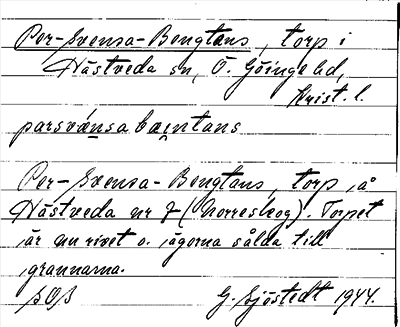 Per-Svensa-Bengtans, torp i
Hästveda sn, Ö. Göinge hd,
Krist. l.
parsvænsa bæntans
Per-Svensa-Bengtans, torp å
Hästveda nr 7 (Norreskog). Torpet
är nu rivet o. ägorna sålda till
grannarna.
SOS G. Sjöstedt 1944.